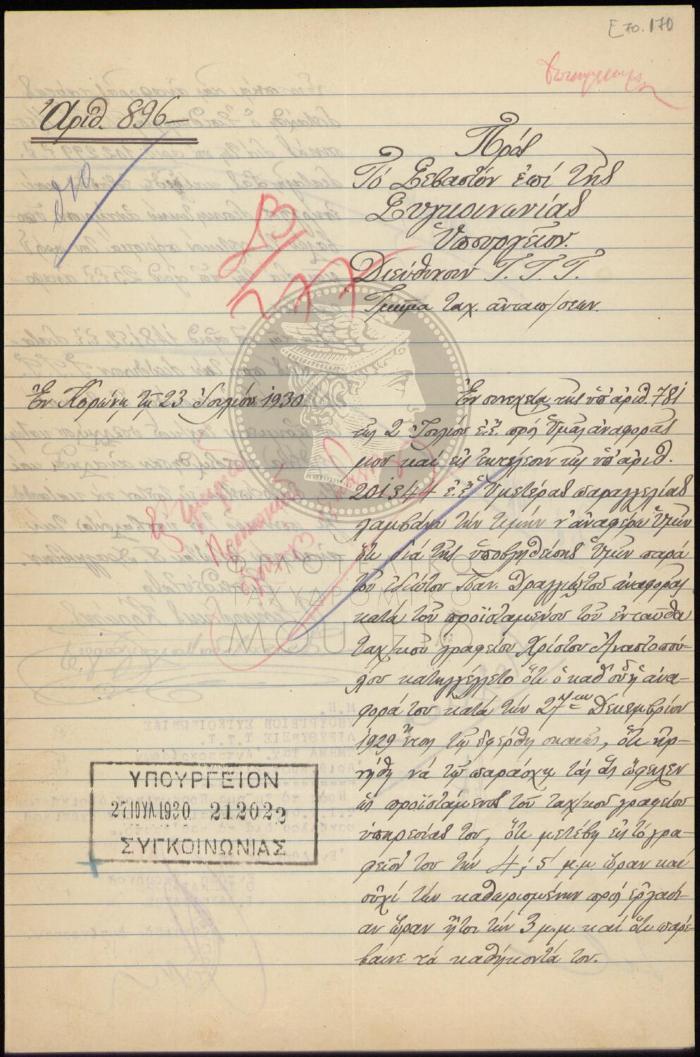 Ε 70.170
Ἀριθ. 896
910
Πρὸς
Τὸ Σεβαστὸν ἐπὶ τῆς
Συγκοινωνίας
Ὑπουργεῖον.
Διεύθυνσιν Τ.Τ.Τ.
Τμῆμα ταχ. ἀνταπ/σεων.
Ἐν Κορώνῃ τῇ 23 Ἰουλίου 1930
Ἐν συνεχείᾳ τῆς ὑπ' ἀριθ. 781
τῆς 2 Ἰουλίου ἐ.ἔ. πρὸς Ὑμᾶς ἀναφορᾶς
μου καὶ εἰς ἐκτέλεσιν τῆς ὑπ' ἀριθ.
201344 ἐ.ἔ. Ὑμετέρας παραγγελίας
λαμβάνω τὴν τιμὴν ν' ἀναφέρω Ὑμῖν
ὅτι διὰ τῆς ὑποβληθείσης Ὑμῖν παρὰ
τοῦ ἰδιώτου Παν. ἀναφορᾶς
κατὰ τοῦ προϊσταμένου τοῦ ἐνταῦθα
ταχ/κοῦ γραφείου Χρίστου Ἀναστοπού-
λου κατηγγέλλετο ὅτι ὁ καθ' οὗ ἡ ἀνα-
φορά του κατὰ τὴν 27ην Δεκεμβρίου
1929 τῷ ἐφέρθη σκαιῶς, ὅτι ἠρ-
νήθη νὰ τῷ παράσχῃ τὰς ἃς ὤφειλεν
ὡς προϊστάμενος τοῦ ταχ/κοῦ γραφείου
ὑπηρεσίας του, ὅτι μετέβη εἰς τὸ γρα-
φεῖον του τὴν 4, 5 μ.μ. ὥραν καὶ
οὐχὶ τὴν καθωρισμένην πρὸς ἐργασί-
αν ὥραν ἤτοι τὴν 3 μ.μ. καὶ ὅτι παρέ-
βαινε τὰ καθήκοντά του.
ΥΠΟΥΡΓΕΙΟΝ
27 ΙΟΥΛ 1930 212022
ΣΥΓΚΟΙΝΩΝΙΑΣ